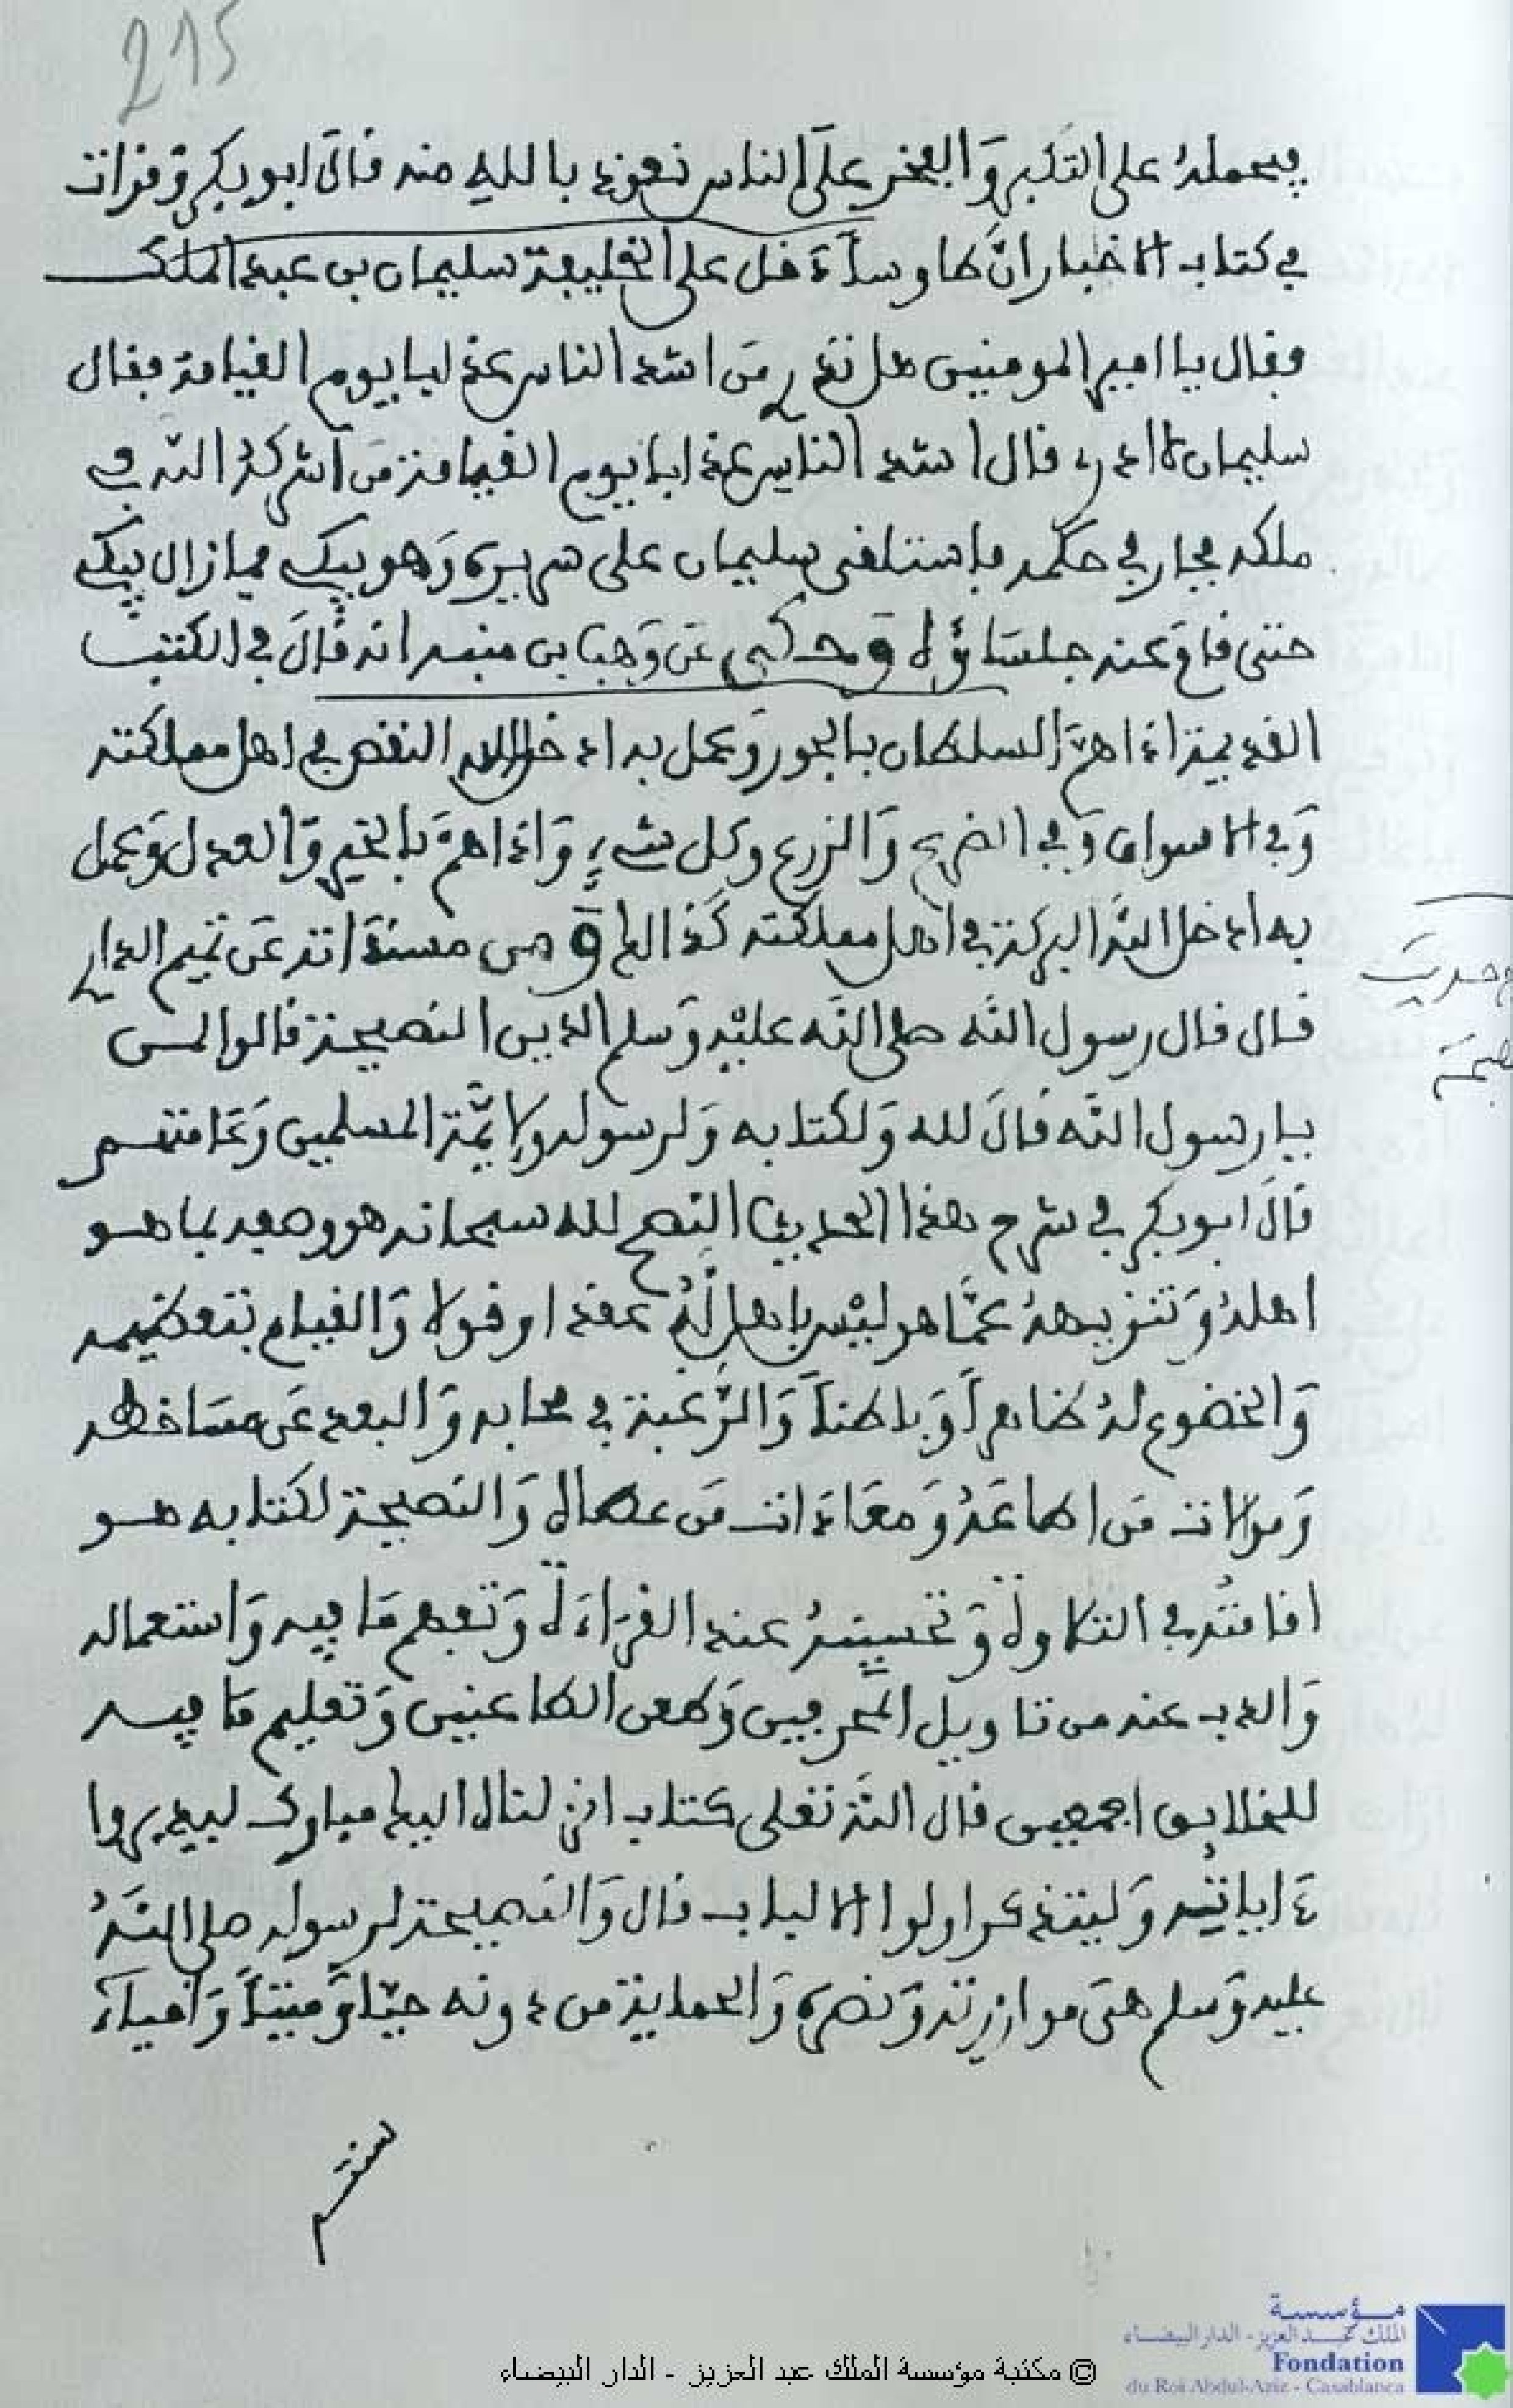 215
فيحمله على التكبر وَالفخر على الناس نعوذ بالله منه قال ابو بكر وَقرات
في كتاب الاخبار انّ طاوسا دَخل على الخليفة سليمان بن عبد الملك
فقال يا امير المومنين هل تدري مَن اشد الناس عذابا يوم القيامة فقال
سليمان لا ادري قال اشد الناس عذابا يوم القيامة مَن اشركهُ الله في
ملكه فجار في حكمه فاستلقى سليمان على سريره وَهو يبكي فما زال يبكي
حتى قام عنه جلساؤه وحكى عَن وَهب بن منبه انه قالَ في الكتب
القديمة اذا همّ السلطان بالجور وَعمل به ادخل الله النقص في اهل مملكته
وَفي الاسواق وَفي الضرع وَالزرع وكل شيء وَاذا همّ بالخير وَالعدل وَعمل
به ادخل الله البركة في اهل مملكته كذالك ومن مسنداته عَن تميم الداري
قال قال رسول الله صلى الله عليْه وَسلم الدين النصيحة قالوا لمن
يا رسول الله قالَ لله وَلكتابه وَلرسوله ولايمّة المسلمين وَعَامتهم
قالَ ابو بكر في شرح هذا الحديث النصح لله سبحانه هو وصفه بما هو
اهلهُ وَتنزيههُ عمّا هو ليْس باهل لهُ عقدا وقولا وَالقيام بتعظيمه
وَالخضوع لهُ ظاهراً وَباطناً وَالرّغبة في محابه وَالبعد عَن مساخطه
وَموالات مَن اطاعَهُ وَمعَادَات مَن عصاه وَالنصيحة لكتابه هو
اقامتُه في التلاوة وَتحسينهُ عند القرَاءَة وَتفهم مَا فيه وَاستعماله
وَالذب عنه من تاويل المحرفين وَطعن الطاعنين وَتعليم مَا فيه
للخلايق اجمعين قال الله تعلى كتاب انزلناه اليك مبارك ليدبروا
ءاياته وَليتذكر اولوا الالباب قال وَالنصيحة لرسوله صلى اللهُ
عليه وَسلم هيَ موازرته وَنصره وَالحماية من دونه حيّا وَميتاً وَاحياء
حديث
سنته
مؤسسة
الملك عبد العزيز - الدار البيضاء
Fondation
du Roi Abdul-Aziz - Casablanca
© مكتبة مؤسسة الملك عبد العزيز - الدار البيضاء